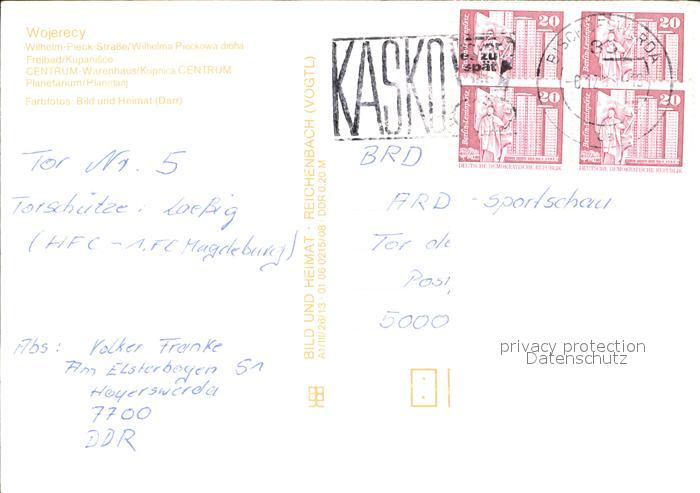 Wojerecy
Wilhelm-Pieck-Straße/Wilhelma Pieckowa dróha
Freibad/Kupanišćo
CENTRUM-Warenhaus/Kupnica CENTRUM
Planetarium/Planetarij
Farbfotos: Bild und Heimat (Darr)
Tor Nr. 5
Torschütze: Laeßig
(HFC - 1. FC Magdeburg)
Abs: Volker Franke
Am Elsterbogen 51
Hoyerswerda
7700
DDR
BILD UND HEIMAT · REICHENBACH (VOGTL)
A1/III/26/13 · 01 06 0215/08 DDR 0,20 M
KASKO
zu
spät
20
Berlin-Leninplatz
20
Berlin-Leninplatz
20
Berlin-Leninplatz
20
Berlin-Leninplatz
DEUTSCHE DEMOKRATISCHE REPUBLIK
BRD
ARD - Sportschau
Tor
5000
privacy protection
Datenschutz